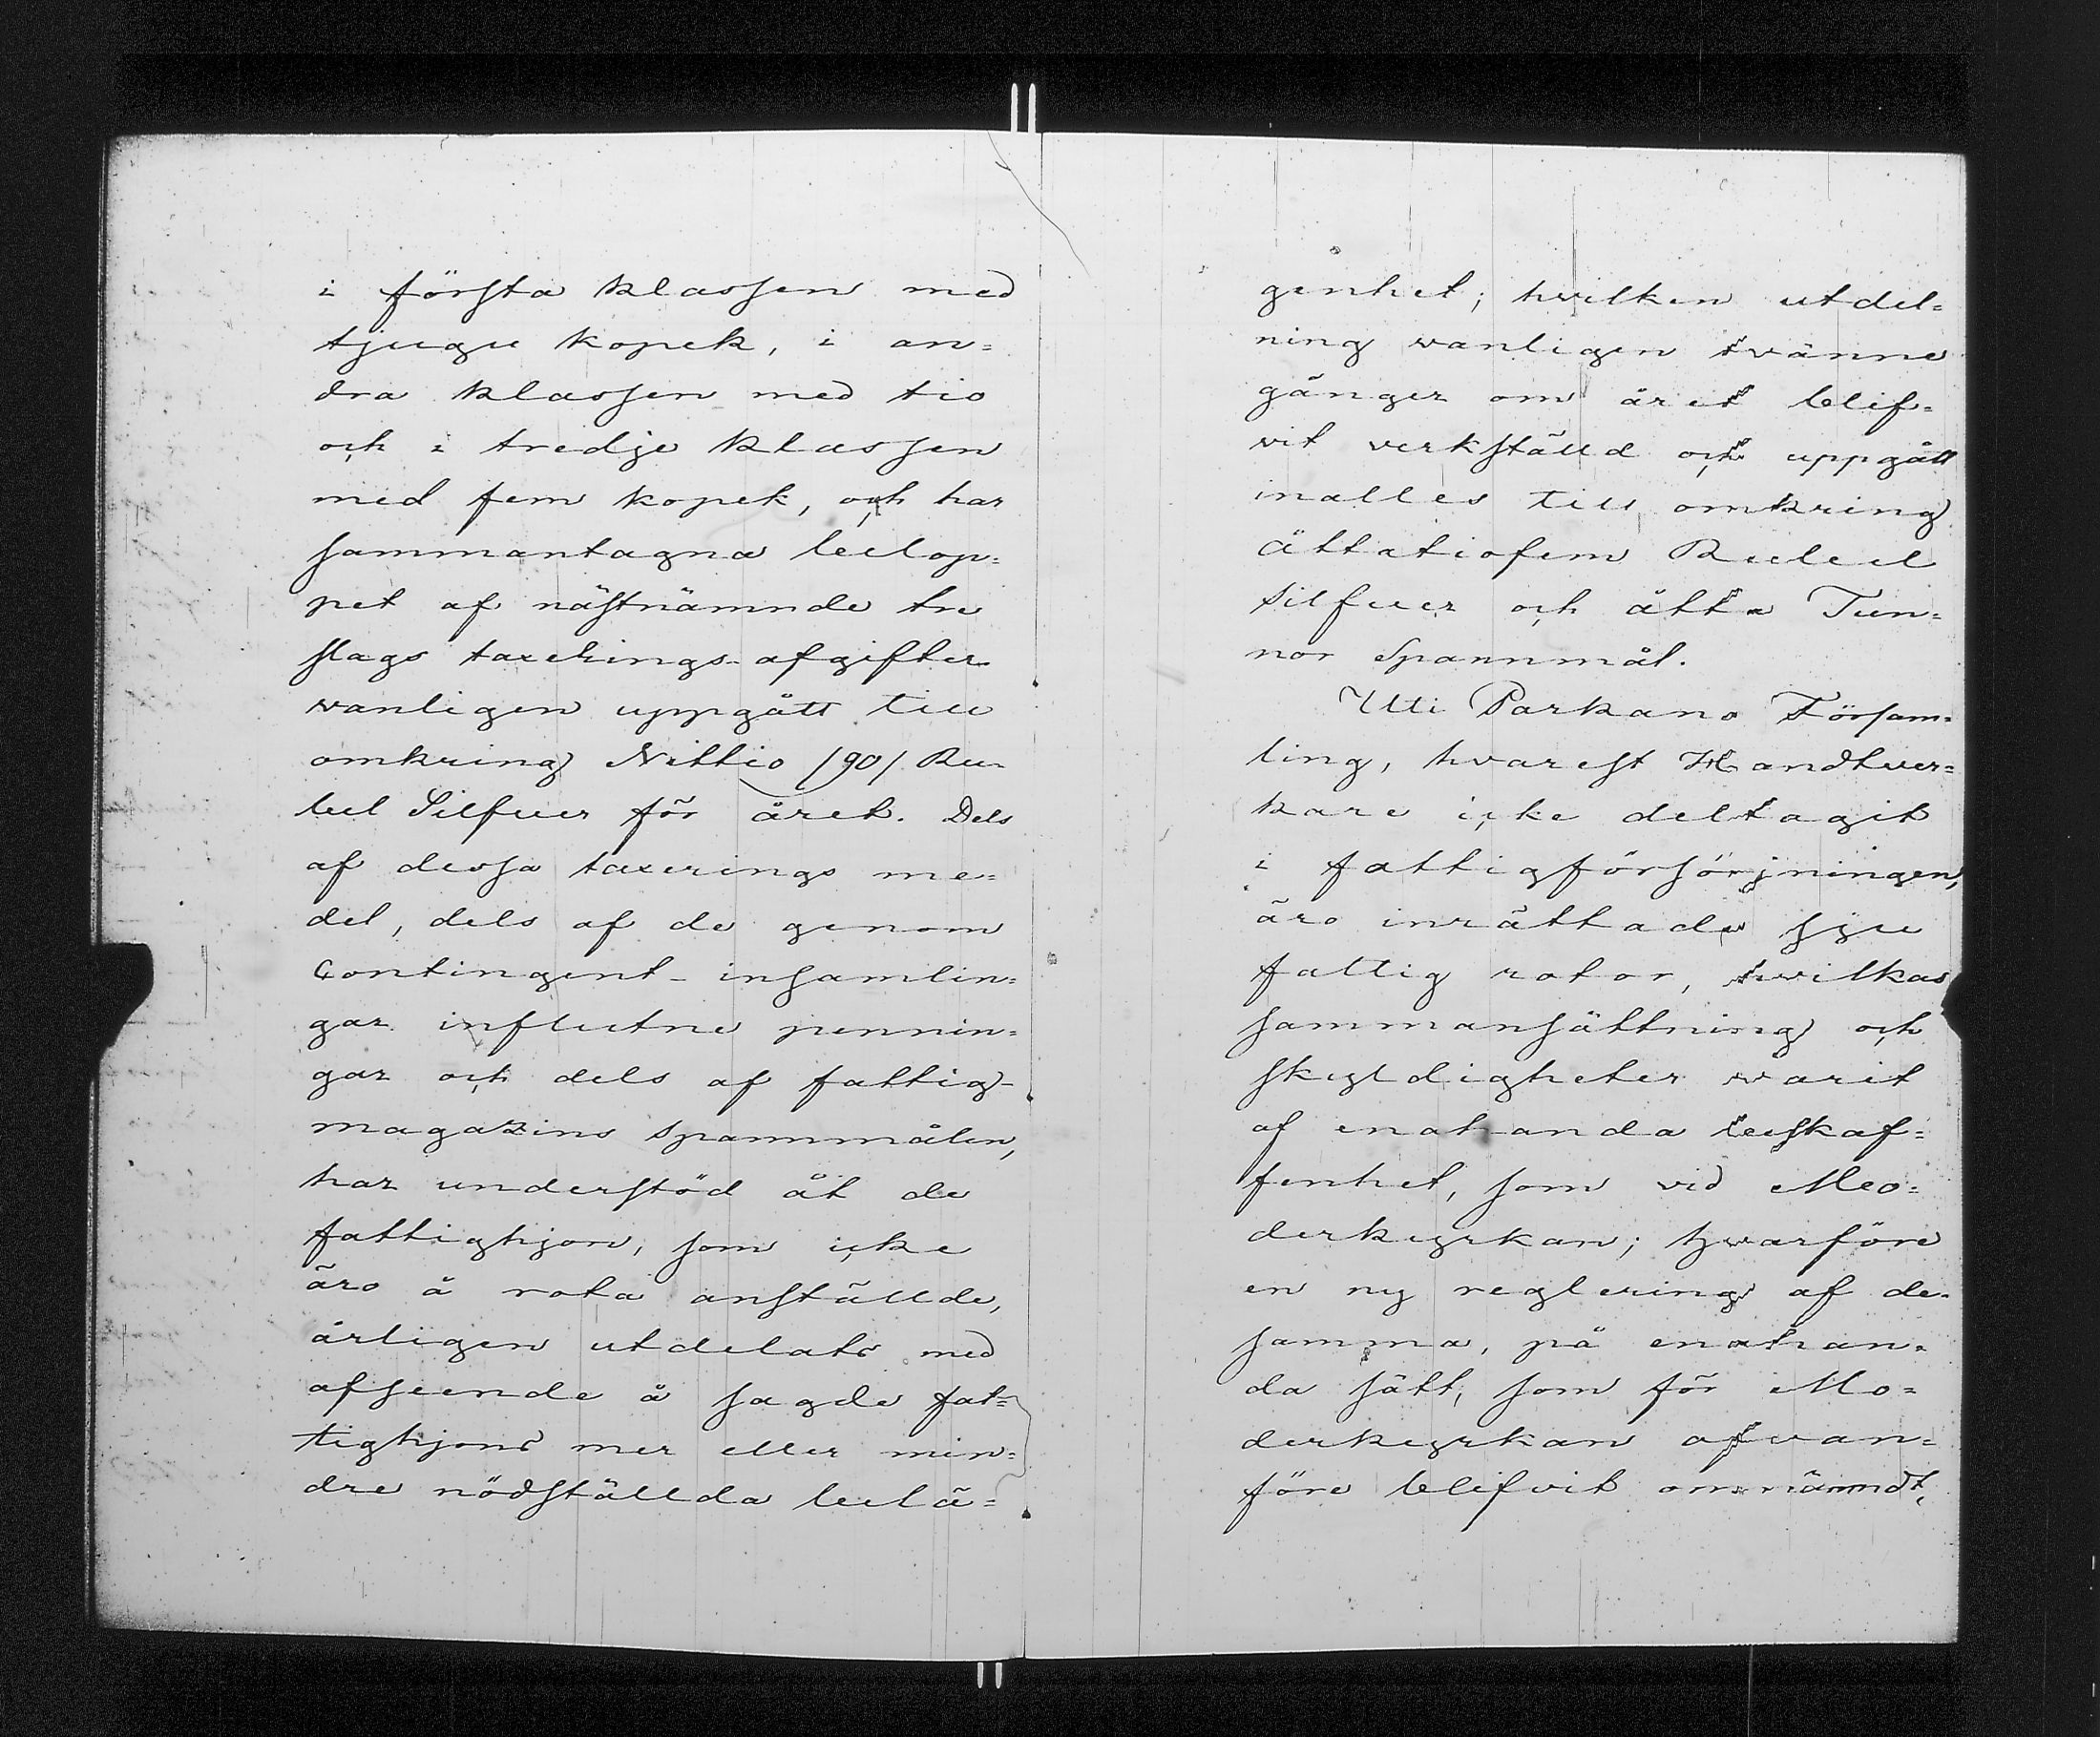 i första klassen med
tjugu kopek, i an=
dra klassen med tio
och i tredje klassen
med fem kopek, och har
sammantagna belop=
pet af nästnämnde tre
slags taxerings-afgifter
vanligen uppgått till
omkring Nittio /90/ Ru-
bel Silfver för året. Dels
af dessa taxerings me=
del, dels af de genom
Contingent-insamlin=
gar influtne pennin=
gar och dels af fattig-
magazins spannmålen,
har understöd åt de
fattighjon, som icke
äro å rota anställde,
årligen utdelats med
afseende å sagde fat=
tighjons mer eller min=
dre nödställda belä=
genhet; hvilken utdel=
ning vanligen tvänne
gånger om året blif=
vit verkställd och uppgått
inalles till omkring
åttatiofem Rubel
Silfver och åtta Tun=
nor Spannmål.
Uti Parkano Försam=
ling, hvarest Handtver=
kare icke deltagit
i fattigförsörjningen,
äro inrättade sju
fattig rotor, hvilkas
sammansättning och
skyldigheter varit
af enahanda beskaf=
fenhet, som vid Mo=
derkyrkan; hvarföre
en ny reglering af de=
samma, på enahan=
da sätt, som för Mo=
derkyrkan ofvan=
före blifvit omnämndt,